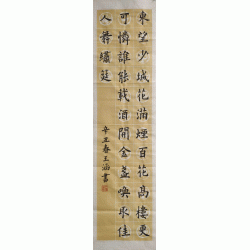 東望少城花滿煙百花高樓更
可憐誰能載酒開金盞喚取佳
人舞繡筵
辛丑春王瀚書